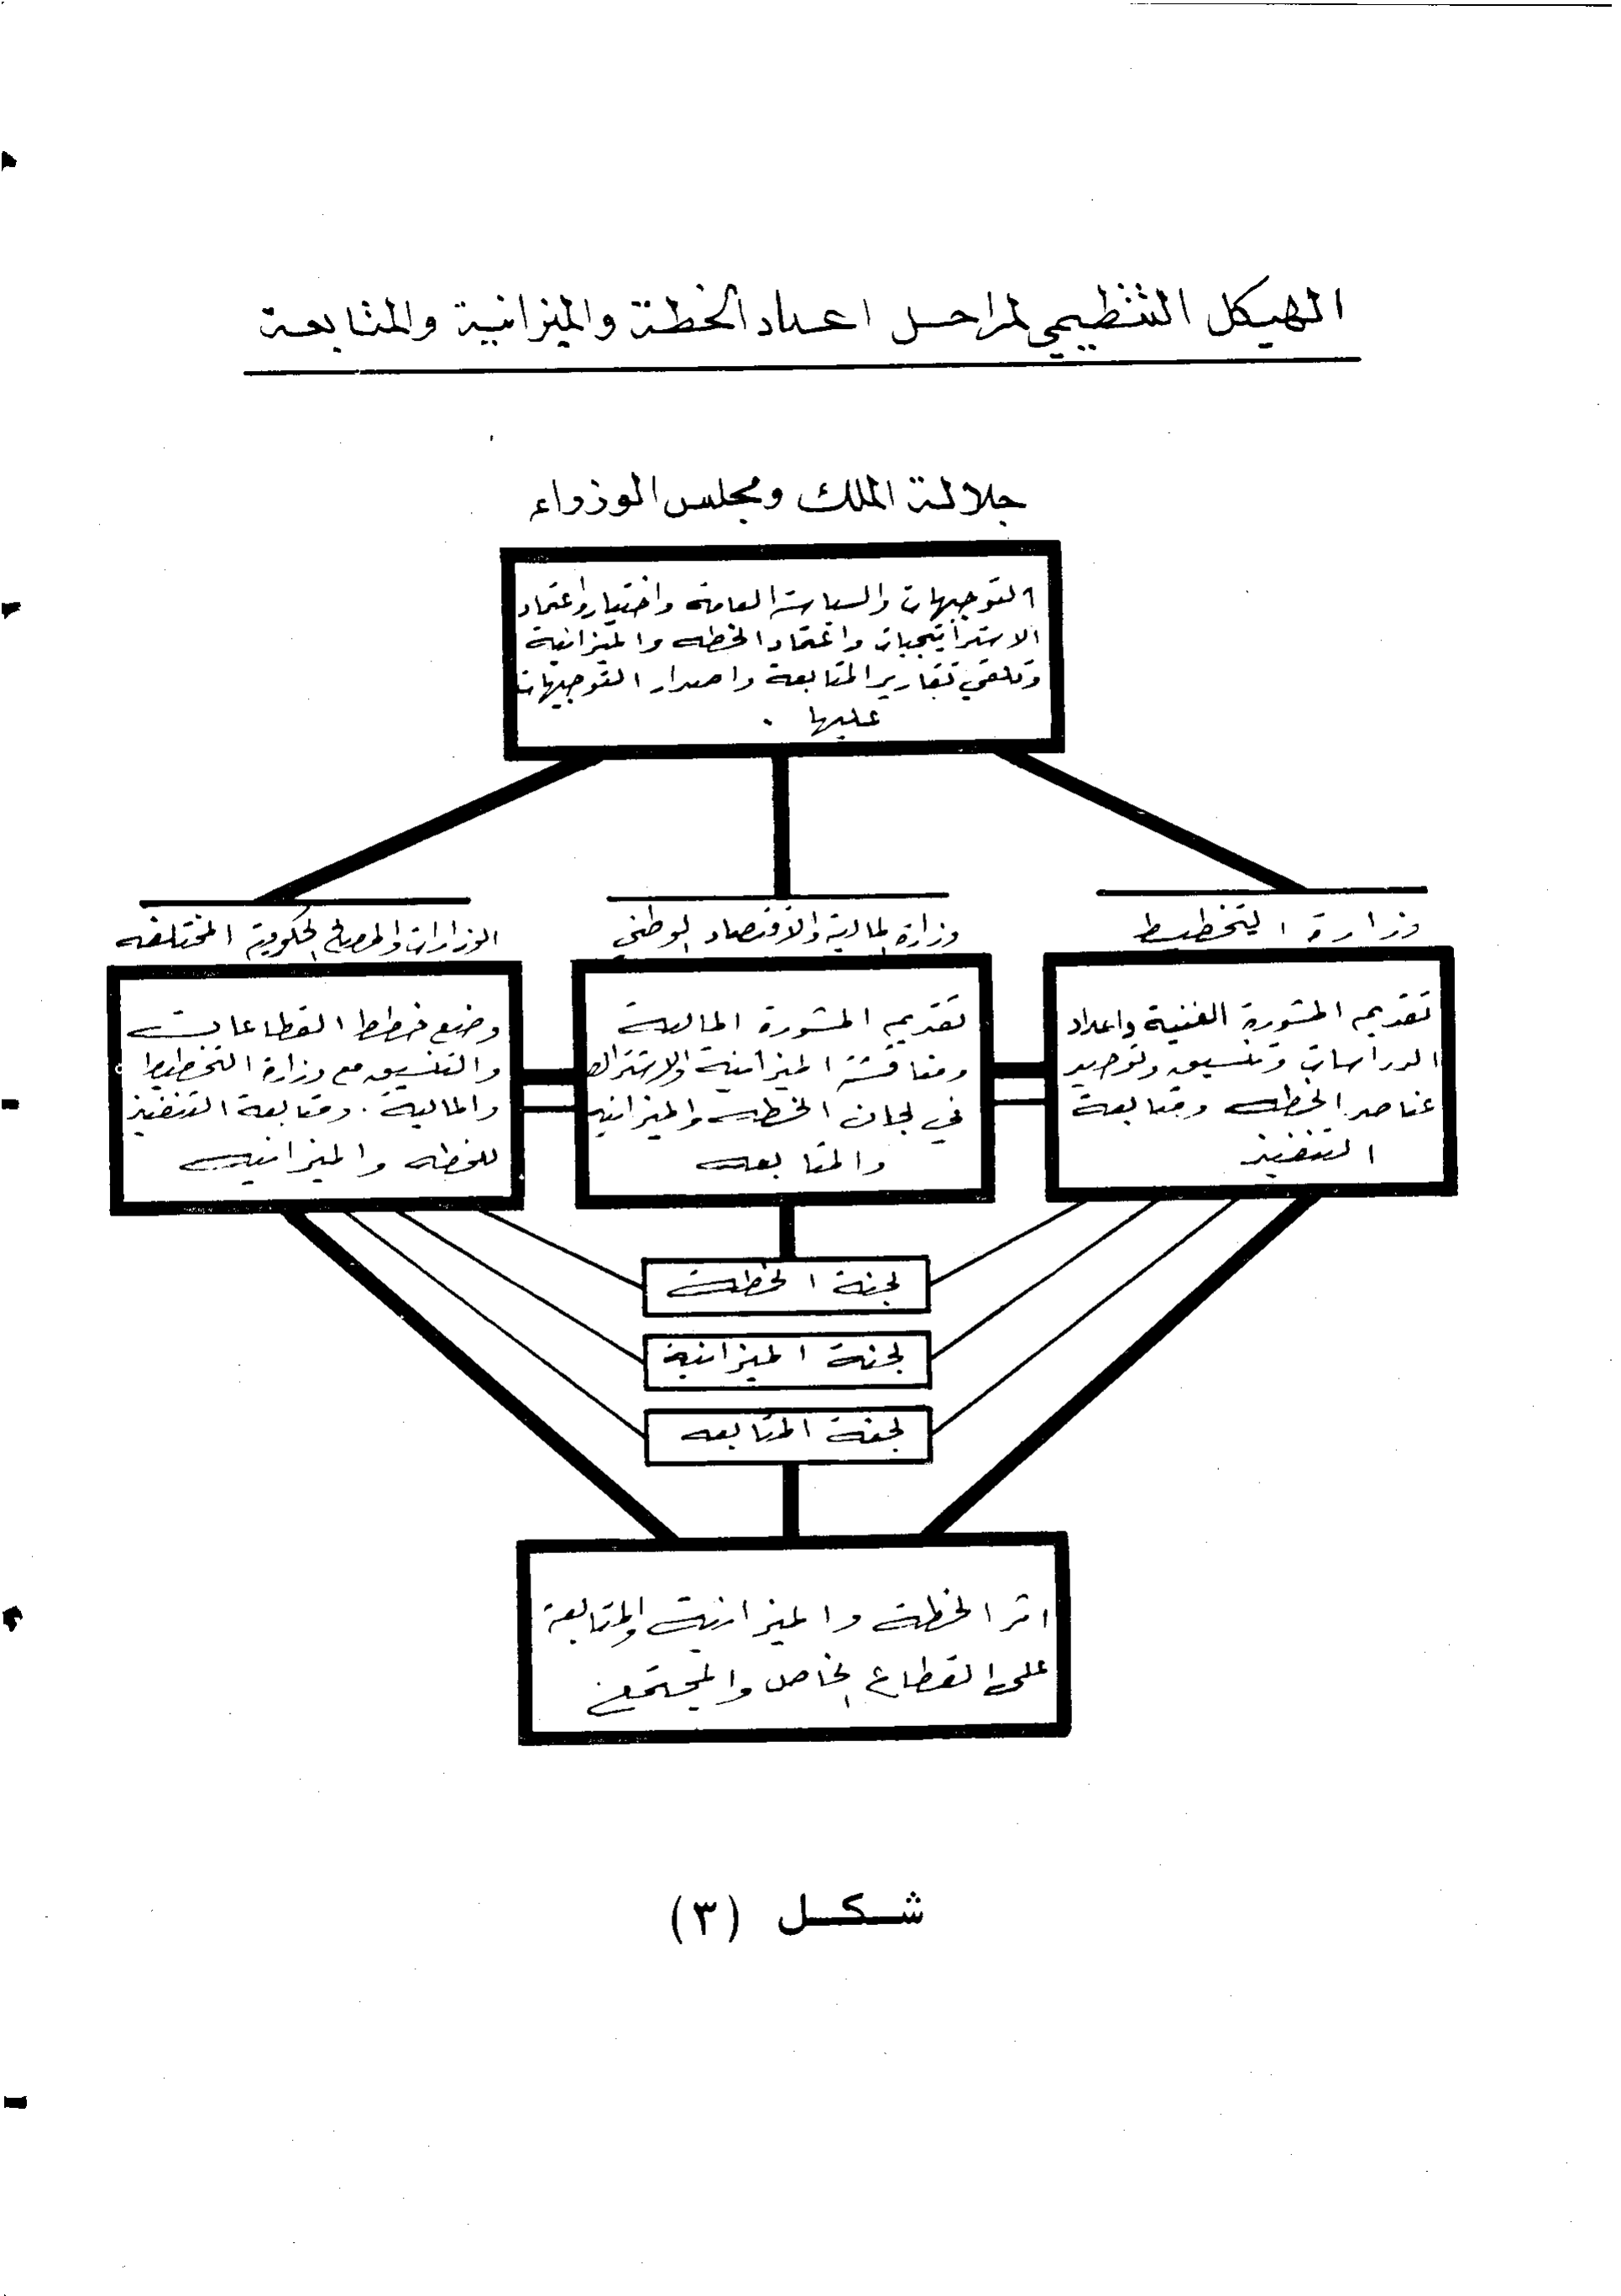 الهيكل التنظيمي لمراحل اعداد الخطة والميزانية والمتابعة
جلالة الملك ومجلس الوزراء
التوجيهات والسياسة العامة واختيار واعتماد
الاستراتيجيات واعتماد الخطه والميزانية
وتلقي تقارير المتابعة واصدار التوجيهات
عليها .
وزارة التخطيط
تقديم المشورة الفنية واعداد
الدراسات وتنسيق وتوحيد
عناصر الخطه ومتابعة
التنفيذ
وزارة المالية والاقتصاد الوطني
تقديم المشورة المالية
ومناقشة الميزانية والاشتراك
في لجان الخطه والميزانيه
والمتابعه
الوزارات والمصالح الحكومية المختلفه
وضع خطط القطاعات
والتنسيق مع وزارة التخطيط
والمالية . ومتابعة التنفيذ
للخطه والميزانيه
لجنة الخطة
لجنة الميزانية
لجنة المتابعه
اثر الخطة والميزانية والمتابعة
على القطاع الخاص والمجتمع
شكل (٣)